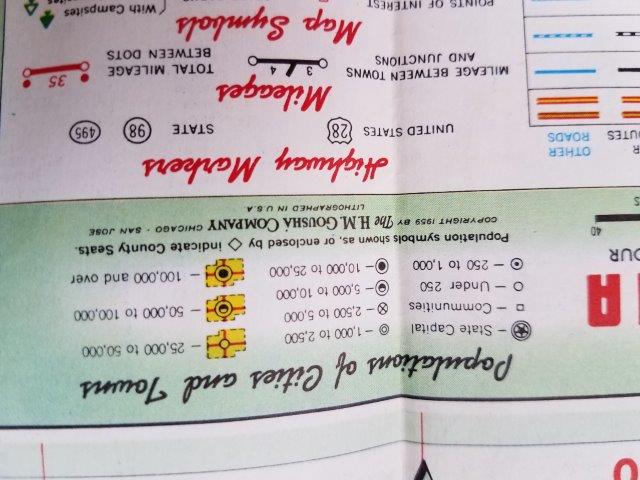 Populations of Cities and Towns
State Capital
Communities
Under 250
250 to 1,000
1,000 to 2,500
2,500 to 5,000
5,000 to 10,000
10,000 to 25,000
25,000 to 50,000
50,000 to 100,000
100,000 and over
Population symbols shown as, or enclosed by ◇ indicate County Seats.
COPYRIGHT 1959 BY The H.M. GOUSHÁ COMPANY CHICAGO · SAN JOSE
LITHOGRAPHED IN U.S.A
40
OTHER
ROADS
Highway Markers
UNITED STATES 28
STATE 98 495
Mileages
MILEAGE BETWEEN TOWNS
AND JUNCTIONS
3 4
TOTAL MILEAGE
BETWEEN DOTS
35
Map Symbols
POINTS OF INTEREST
With Campsites